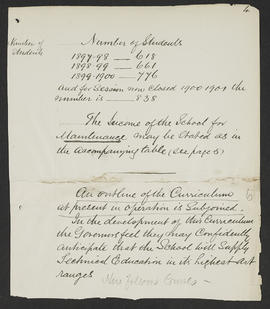 4
Number of Students
Number of
Students
1897-98 — 618
1898-99 — 661
1899-1900 — 776
and for Session now closed 1900-1901 the
number is — 838
The Income of the School for
Maintenance may be stated as in
the accompanying table (see page 5)
An outline of the Curriculum
at present in operation is Subjoined.
In the development of this Curriculum
the Governors feel they may confidently
anticipate that the School will supply
Technical Education in its highest art
ranges
Here follows Courses